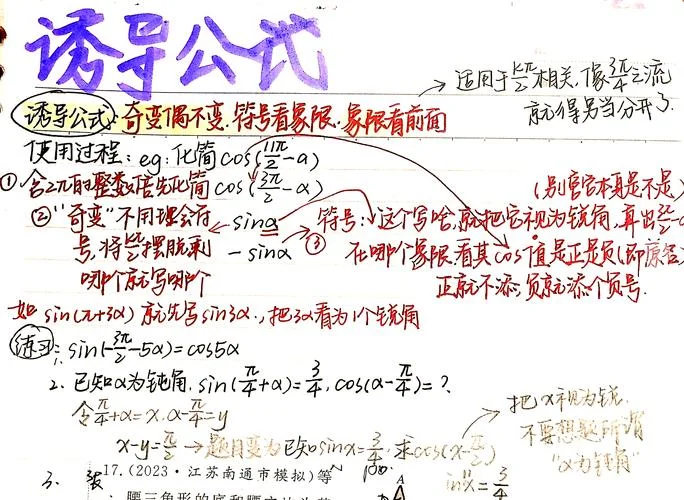 诱导公式
→ 适用于kπ/2相关,像3π/4之流
就得另当分开了.
诱导公式: 奇变偶不变.符号看象限.象限看前面
使用过程: eg: 化简cos(11π/2-α)
① 含2π的整数倍先化简 cos(3π/2-α)
(别管它本身是不是)
② "奇变"不用理会符 - sinα
号,将kπ/2摆脱剩 - sinα
哪个就写哪个
③ 符号:这个写啥,就把它视为锐角,算出
在哪个象限,看其cos值是正是负(即原名)
正就不添,负就添个负号.
如 sin(π+3α) 就先写sin3α.,把3α看为1个锐角
练习: 1. sin(-3π/2-5α)=cos5α
2. 已知α为钝角, sin(π/4+α)=3/4, cos(α-π/4)=?
令π/4+α=x, α-π/4=y
x-y=π/2 → 题目变为已知sinx=3/4,求cos(x-π/2)
→ 把x视为锐.
不要想题所谓
"α为钝角"
sinx=3/4
3.
17.(2023·江苏南通市模拟)等
腰三角形的底和腰
A